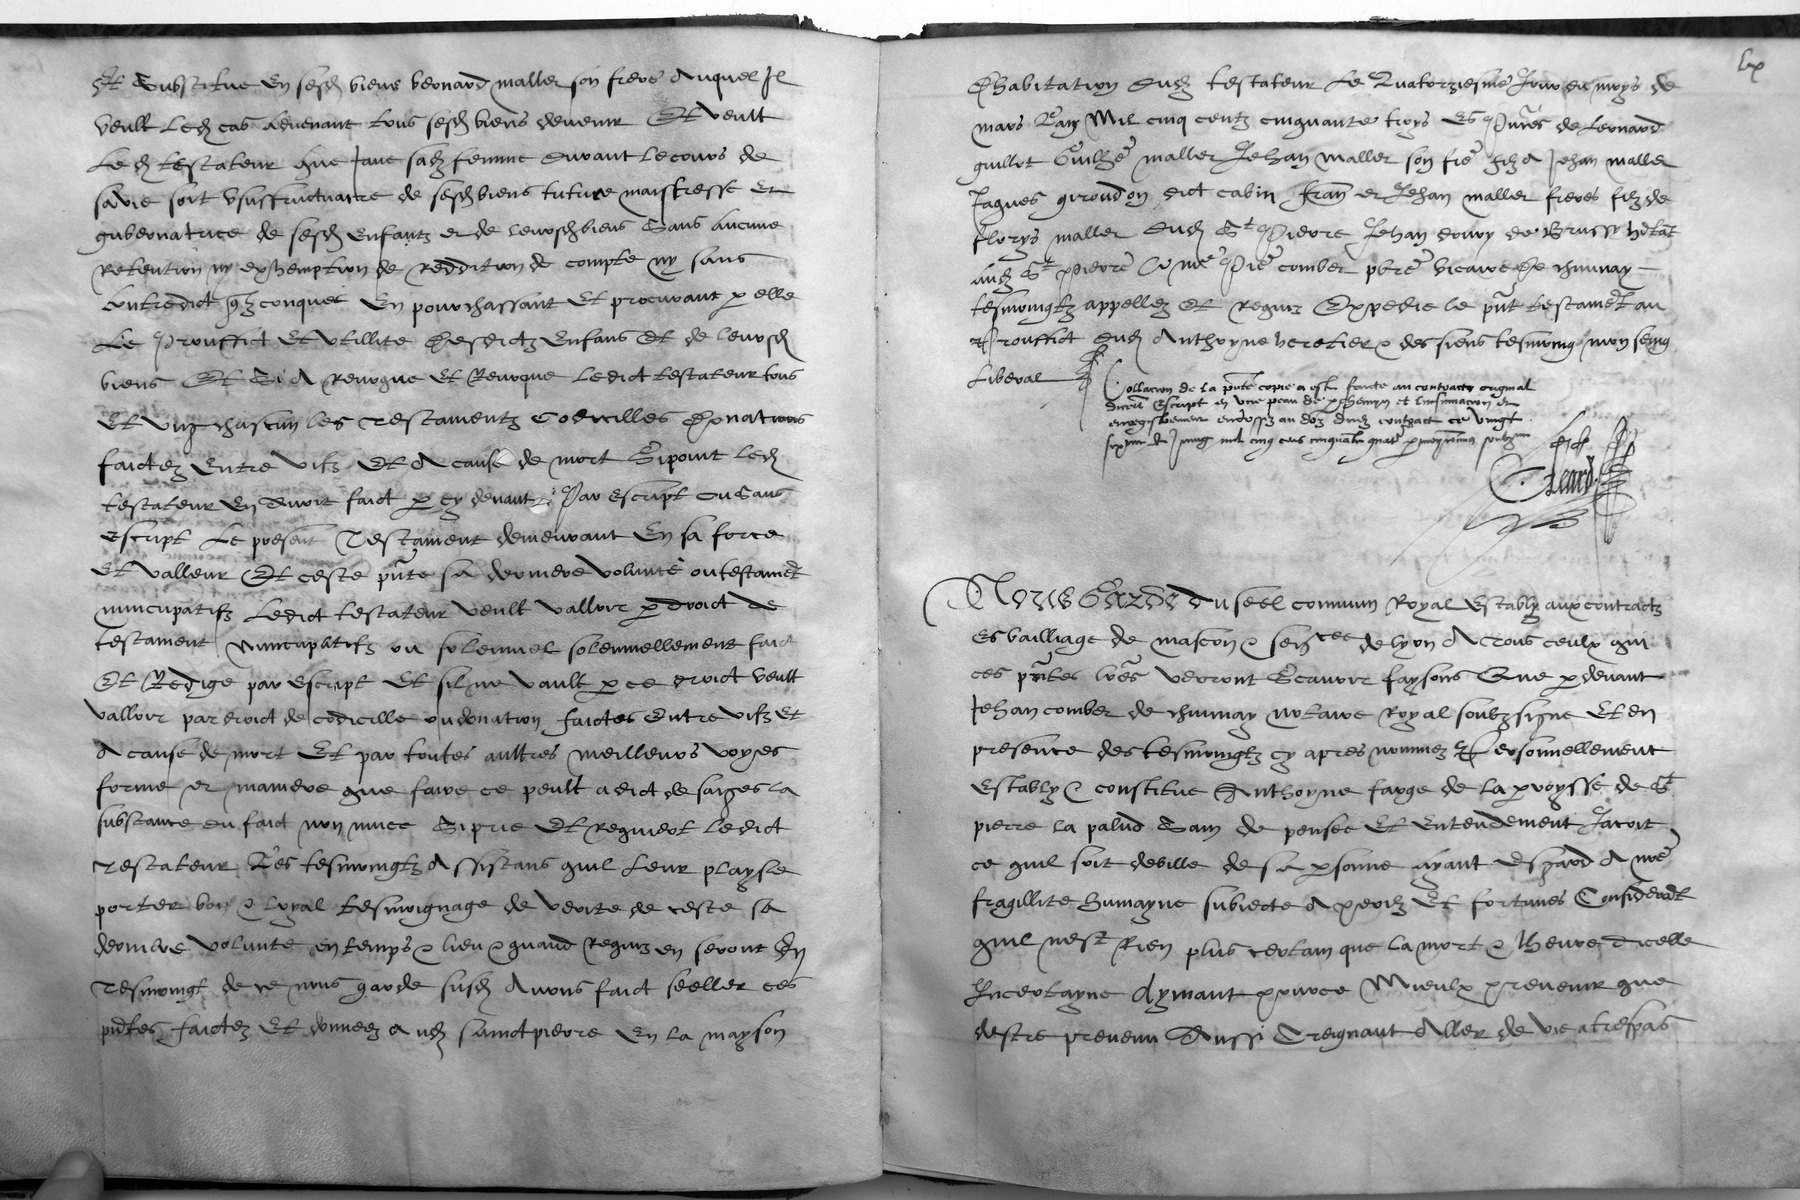 Et Substitue en sesd biens leonard maller son frere Auquel Il
veult Led cas advenant tous sesd biens devenir Et veult
Le d testateur que Jane sad femme durant le cours de
sa vie soit Usuffructuaire de sesd biens tutrice maistresse et
gubernatrice de sesd Enfantz et de leursd biens Sans Aucune
Retention ny exhemption de Reddition de compte ny sans
contredict En pourchassant Et procurant p elle
Le Prouffict Et utillite desdictz Enfans Et de leursd
biens Et Si A Revoque Et Revoque Ledict testateur tous
Et ung chascun les Testamentz Codicilles donations
faictez Entre vifz Et A cause de mort Si point Led
testateur En Avoit faict p cy devant Par Escript ou Sans
Escript Le present Testament demeurant En sa force
Et valleur Et ceste pnte sa derniere volunte ou testament
nuncupatifz Ledict testateur veult valloir p droict de
testament nuncupatifz ou solempnel solempnellement faict
Et Redige par Escript Et sil ne vault p ce droict veult
valloir par droict de codicille ou donation faictes Entre vifz Et
A cause de mort Et par toutes aultres meilleurs voyes
forme et maniere que faire ce peult a dict de saiges la
substance du faict non muee Si prie Et Requiert Ledict
Testateur Les tesmoingtz Assistans quil Leur playse
porter bon & loyal tesmoignage de verite de ceste sa
derniere volunte en temps & lieu & quand Requiz en seront En
Tesmoingt de ce nous garde susd Avons faict seeller ces
pntes faictez Et donneez aud sainct pierre En la mayson
Dhabitation dud testateur Le Quatorziesme Jour du moys de
mars Lan Mil cinq centz cinquante troys Es Pntes de Leonard
guillot maller Jehan maller son fre filz a Jehan maller
Jaques giroudon dict cabin Fran et Jehan maller freres filz de
florys maller dud St Pierre Jehan de Brussy hitant
aud St pierre Et me Pre comber pbre vicaire de chunay
tesmoingtz appellez Et Requiz Expedie le pnt testament au
Prouffict dud Anthoyne heretier & des siens tesmoing mon seing
Liberal
Collacion de la pnte copie a este faicte au contract original
Escript en une peau de pchemyn et linsinuacion et
enregistrement endossz au doz dud contract ce vingt
Jung mil cinq cens cinquante quatre p moy
Nous Garde du seel commun Royal Establly aux contractz
es bailliage de mascon & sen de lyon A Tous ceulx qui
ces pntes lres verront Scavoir faysons Que p devant
Jehan comber de chunay notaire Royal soubzsigne Et en
presence des tesmoingtz cy apres nommez Personnellement
Estably & constitue Anthoyne farge de la parroysse de St
pierre la palud Sain de pensee Et Entendement Jacoit
ce quil soit debille de sa psonne ayant Esgard A nre
fragillite humayne subiecte A perilz Et fortunes Considerant
quil nest Rien plus certain que la mort & lheure dicelle
Incertayne Aymant Mieulx prevenir que
destre prevenu Aussi Creignant Aller de vie a trespas